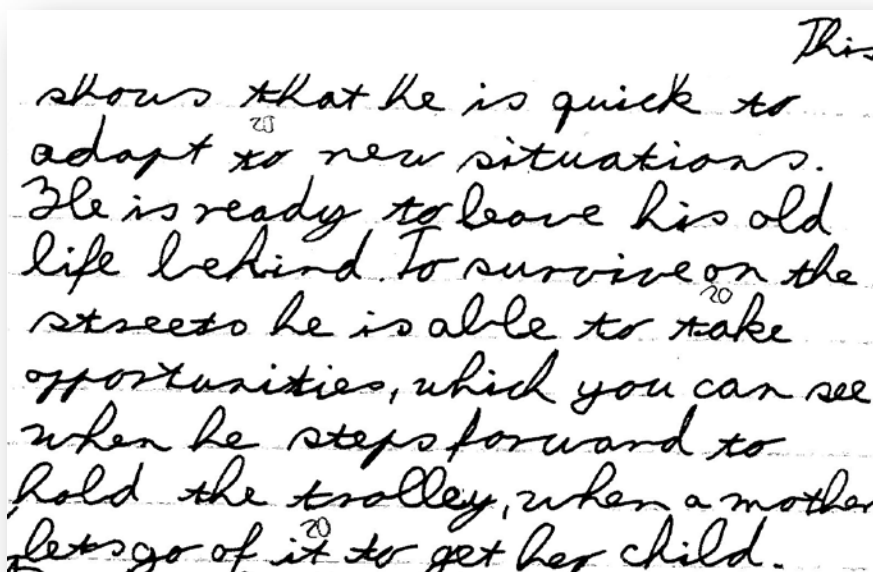 This
shows that he is quick to
20
adapt to new situations.
He is ready to leave his old
life behind. To survive on the
20
streets he is able to take
opportunities, which you can see
when he steps forward to
hold the trolley, when a mother
20
lets go of it to get her child.